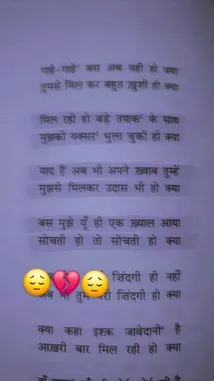 गाहे-गाहे¹ बस अब यही हो क्या
तुमसे मिल कर बहुत ख़ुशी हो क्या
मिल रही हो बड़े तपाक² के साथ
मुझको यक्सर³ भुला चुकी हो क्या
याद हैं अब भी अपने ख़्वाब तुम्हें
मुझसे मिलकर उदास भी हो क्या
बस मुझे यूँ ही एक ख़्याल आया
सोचती हो तो सोचती हो क्या
ज़िंदगी ही नहीं
ज़िंदगी हो क्या
क्या कहा इश्क़ जावेदानी⁴ है
आख़री बार मिल रही हो क्या